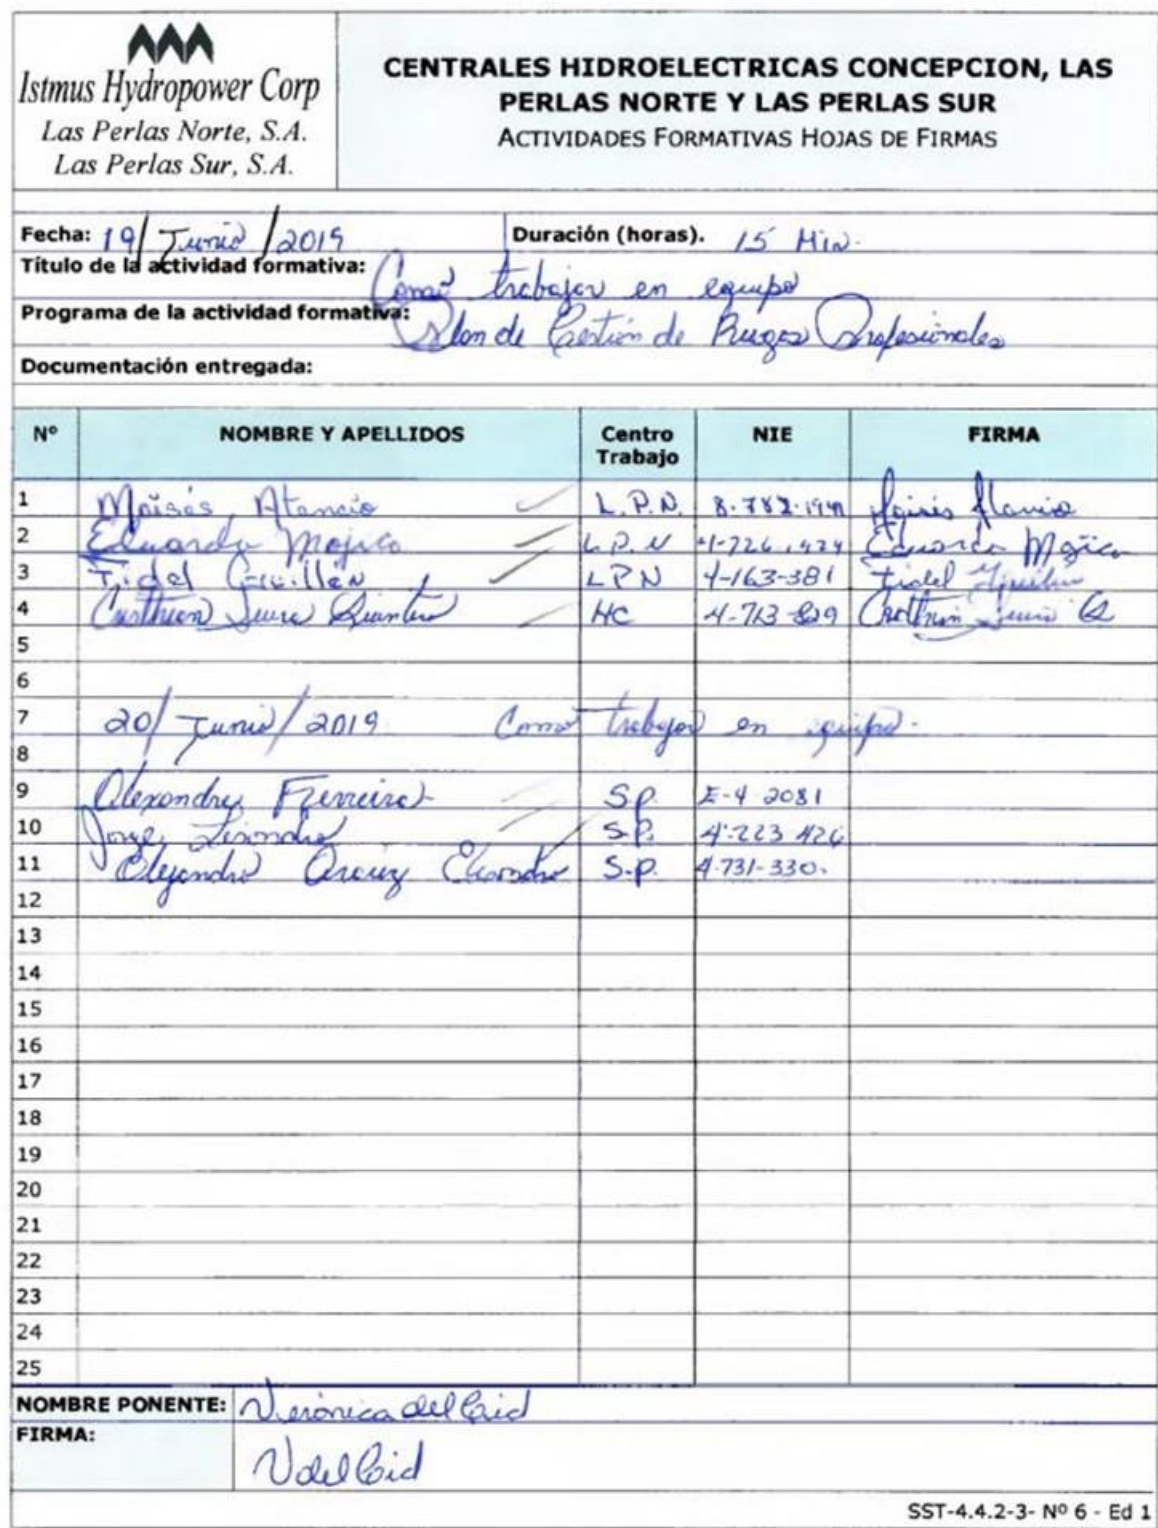 Istmus Hydropower Corp
Las Perlas Norte, S.A.
Las Perlas Sur, S.A.
CENTRALES HIDROELECTRICAS CONCEPCION, LAS
PERLAS NORTE Y LAS PERLAS SUR
ACTIVIDADES FORMATIVAS HOJAS DE FIRMAS
Fecha: 19/Junio/2019 Duración (horas). 15 Min.
Título de la actividad formativa: Como trabajar en equipo
Programa de la actividad formativa: Plan de Gestión de Riesgos Profesionales
Documentación entregada:
Nº NOMBRE Y APELLIDOS Centro Trabajo NIE FIRMA
1 Moisés Atencio L.P.N. 8-782-
2 Eduardo Mojica L.P.N Eduardo Mojica
3 Fidel Guillén LPN 4-163-381 Fidel
4 Quintero HC 4-713-829
5
6
7 20/Junio/2019 Como trabajar en equipo.
8
9 Alexandre Ferreira S.P. E-4 2081
10 Jorge S.P. 4-223 426
11 Alejandro Arauz S.P. 4-731-330.
12
13
14
15
16
17
18
19
20
21
22
23
24
25
NOMBRE PONENTE: Verónica del Cid
FIRMA: V del Cid
SST-4.4.2-3- Nº 6 - Ed 1